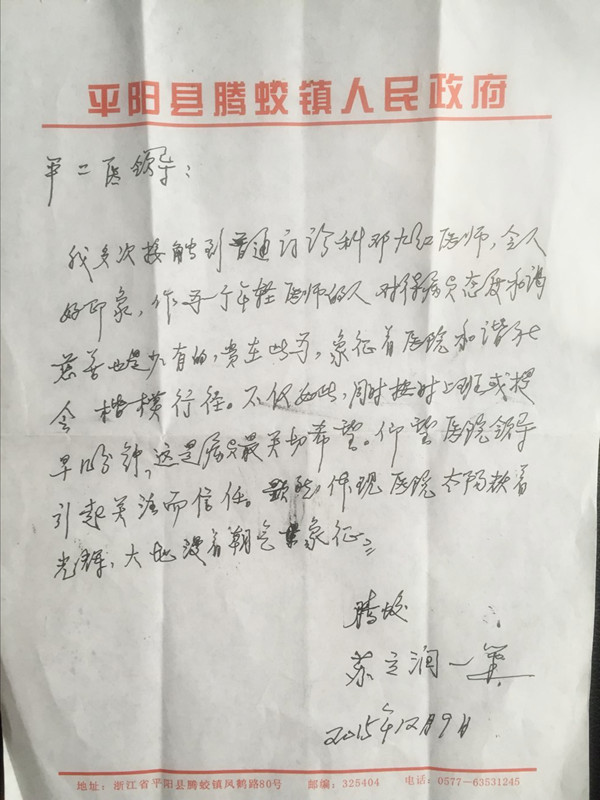 平阳县腾蛟镇人民政府
第二医领导:
我多次接触到普通门诊科邓九红医师,令人
好印象,作为一个年轻医师的人对待病员态度和谐
慈善也是少有的,贵在此等,象征着医院和谐社
会楷模行径。不仅如此,同时按时上班或提
早10分钟,这是病员最关切希望。仰望医院领导
引起关注而信任。体现医院太阳
光辉,大地漫着朝气象征
腾蛟
苏立润一笔
2015年12月9日
地址:浙江省平阳县腾蛟镇凤鹤路80号 邮编:325404 电话:0577-63531245